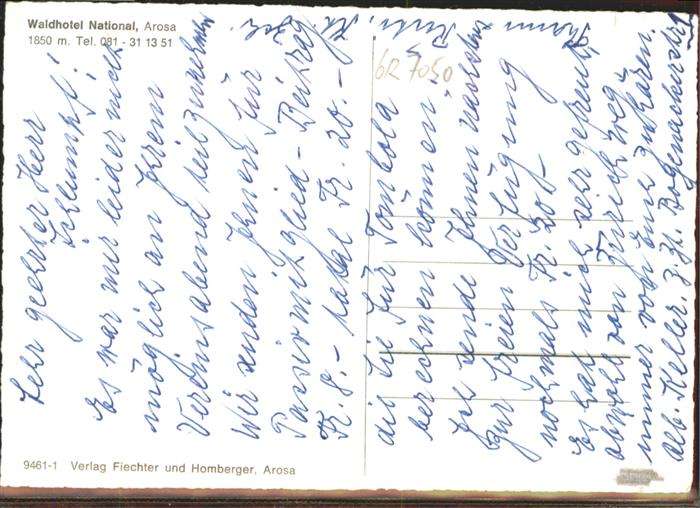 Waldhotel National, Arosa
1850 m. Tel. 081 - 31 13 51
Sehr geehrter Herr
Schlumpf!
Es war mir leider nicht
möglich an Ihrem
Vereinsabend teilzunehmen
Wir senden Ihnen für
Passivmitglied-Beitrag
Fr. 8.- total Fr. 20.-
die Sie für Tombola
berechnen können
Ich sende Ihnen nächstens
zur freien Verfügung
nochmals Fr. 20.-
Es hat mich sehr gefreut,
obwohl von Zürich weg,
immer von Euch zu hören.
Alb. Keller, z. Zt. Bogenackerstr.
GR 7050
9461-1 Verlag Fiechter und Homberger, Arosa